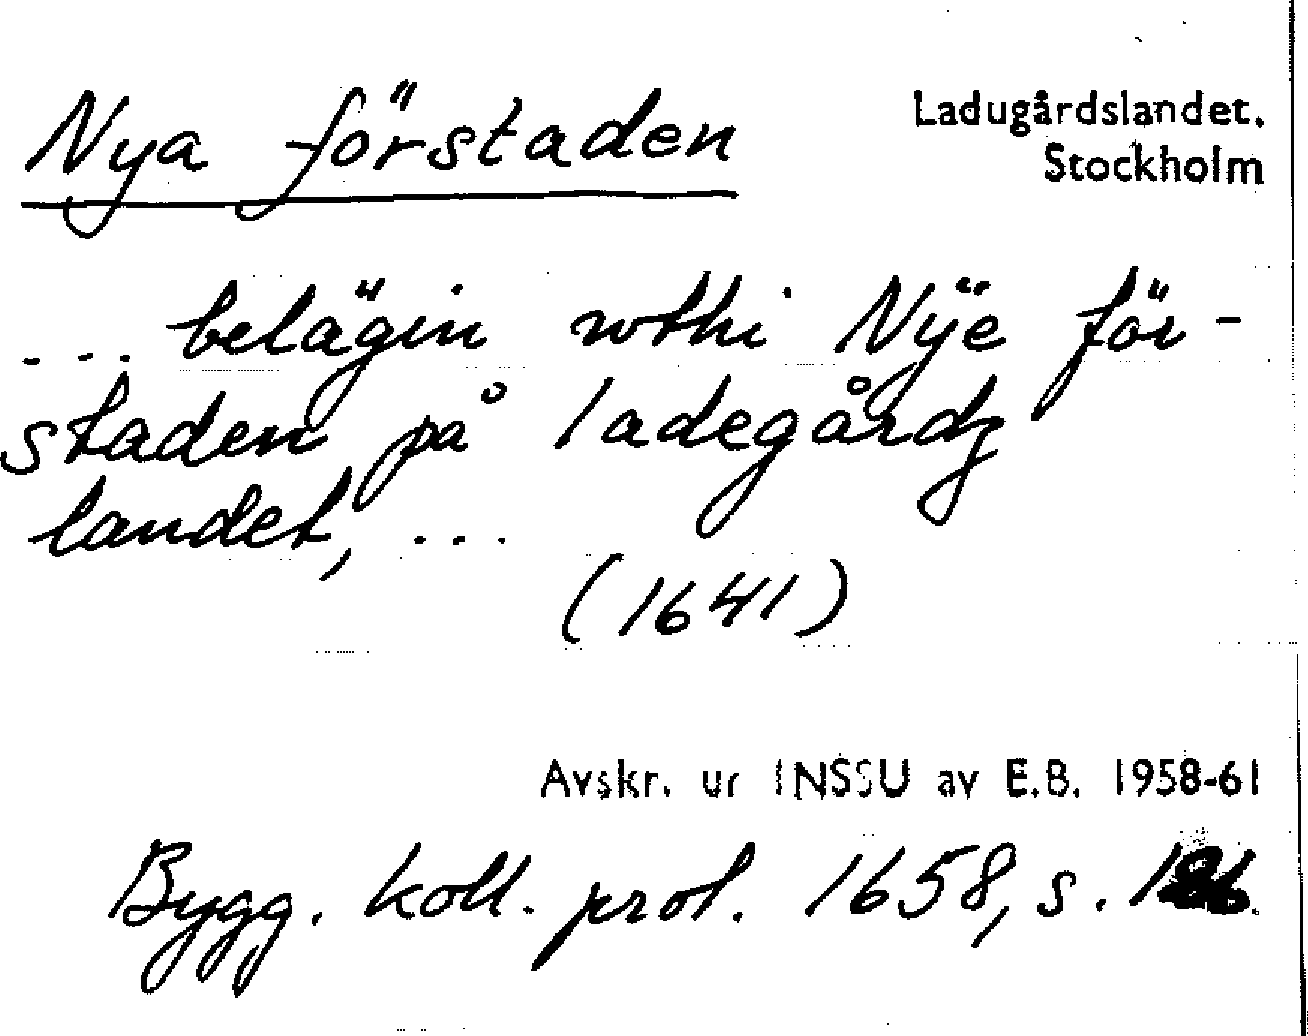 Nya förstaden
Ladugårdslandet.
Stockholm
... belägin wthi Nÿe för-
staden på ladegårdz
landet, ...
(1641)
Avskr. ur INSSU av E.B. 1958-61
Bygg. koll. prot. 1658, s.